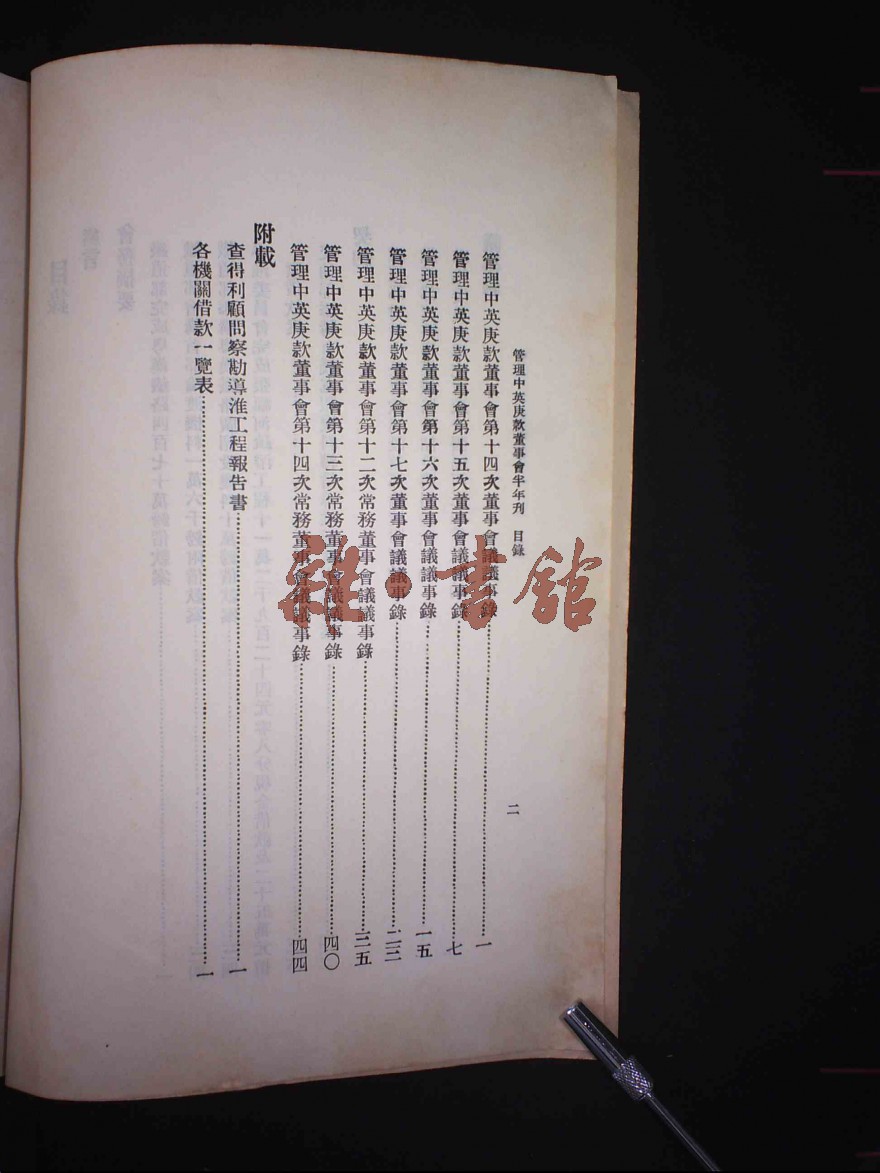 管理中英庚款董事會半年刊 目錄
二
管理中英庚款董事會第十四次董事會議議事錄 一
管理中英庚款董事會第十五次董事會議議事錄 七
管理中英庚款董事會第十六次董事會議議事錄 一五
管理中英庚款董事會第十七次董事會議議事錄 二三
管理中英庚款董事會第十二次常務董事會議議事錄 三五
管理中英庚款董事會第十三次常務董事會議議事錄 四〇
管理中英庚款董事會第十四次常務董事會議議事錄 四四
附載
查得利顧問察勘導淮工程報告書 一
各機關借款一覽表 一
雜·書館